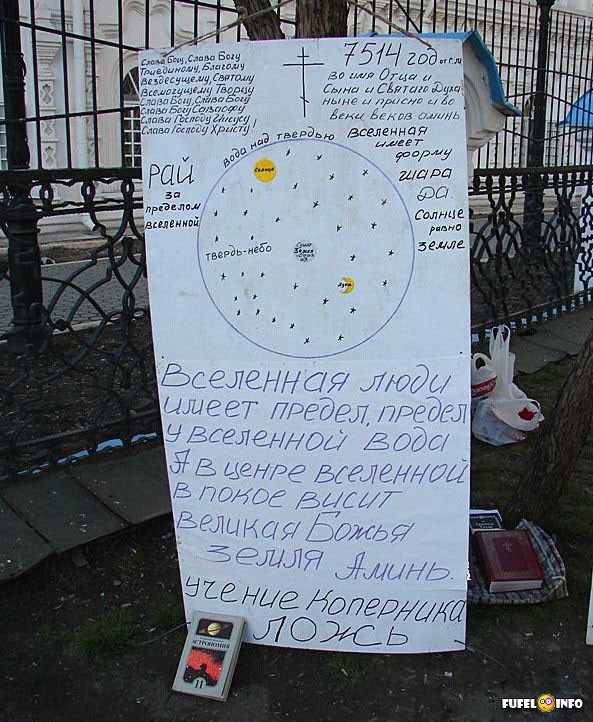 Слава Богу, Слава Богу
Триединому, Благому
Вездесущему, Святому
Всемогущему Творцу
Слава Богу, Слава Богу
Слава Богу Саваофу
Слава Господу Иисусу
Слава Господу Христу!
7514 год от С.М
Во имя Отца и
Сына и Святаго Духа
Ныне и присно и во
веки веков аминь
Вода над твердью
Вселенная
имеет
форму
шара
Да
Солнце
равно
Земле
РАЙ
за
пределом
вселенной
Солнце
Твердь-небо
Земля
Луна
Вселенная люди
имеет предел, предел
у вселенной вода
А в ценре вселенной
в покое висит
великая Божья
земля Аминь.
Учение Коперника
ложь
АСТРОНОМИЯ
11
FUFEL INFO